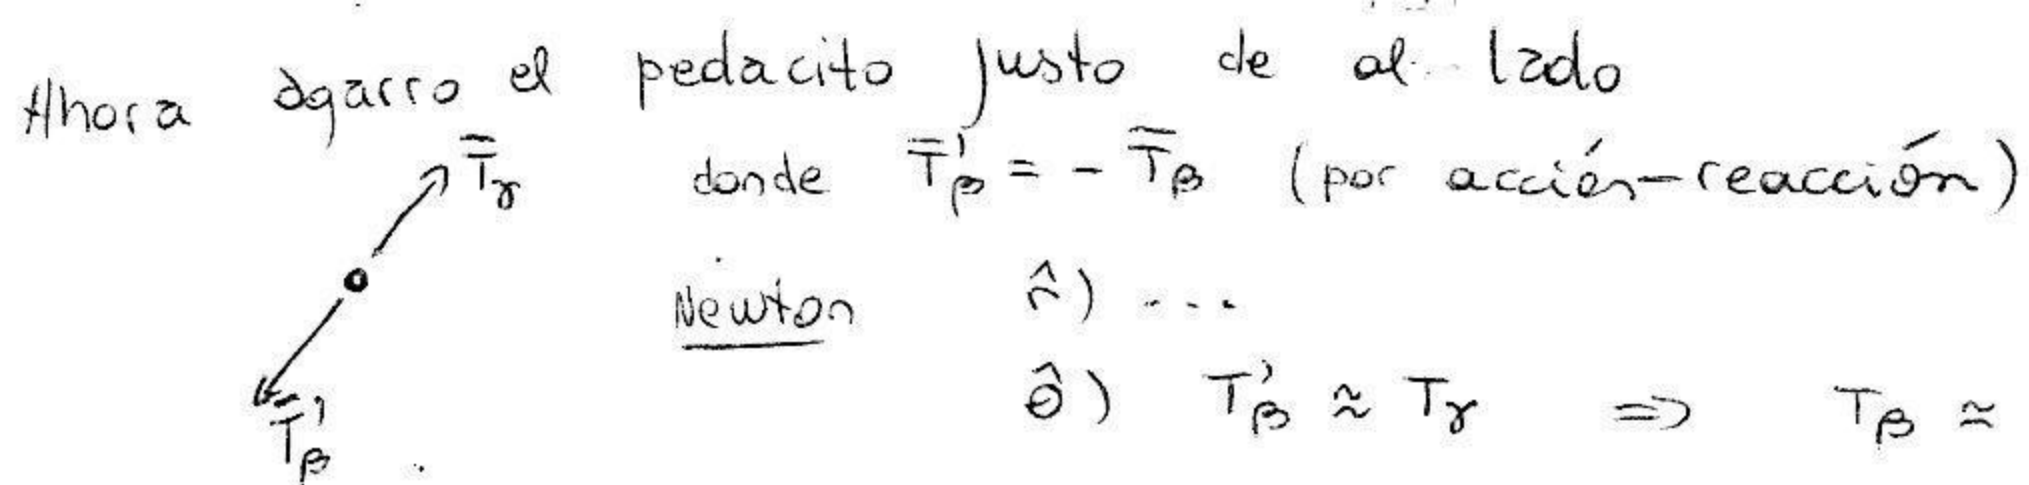 Ahora agarro el pedacito justo de al lado
T̄ᵧ donde T̄'β = - T̄β (por acción-reacción)
Newton r̂) ...
θ̂) T'β ≈ Tᵧ => Tβ ≈
T̄'β